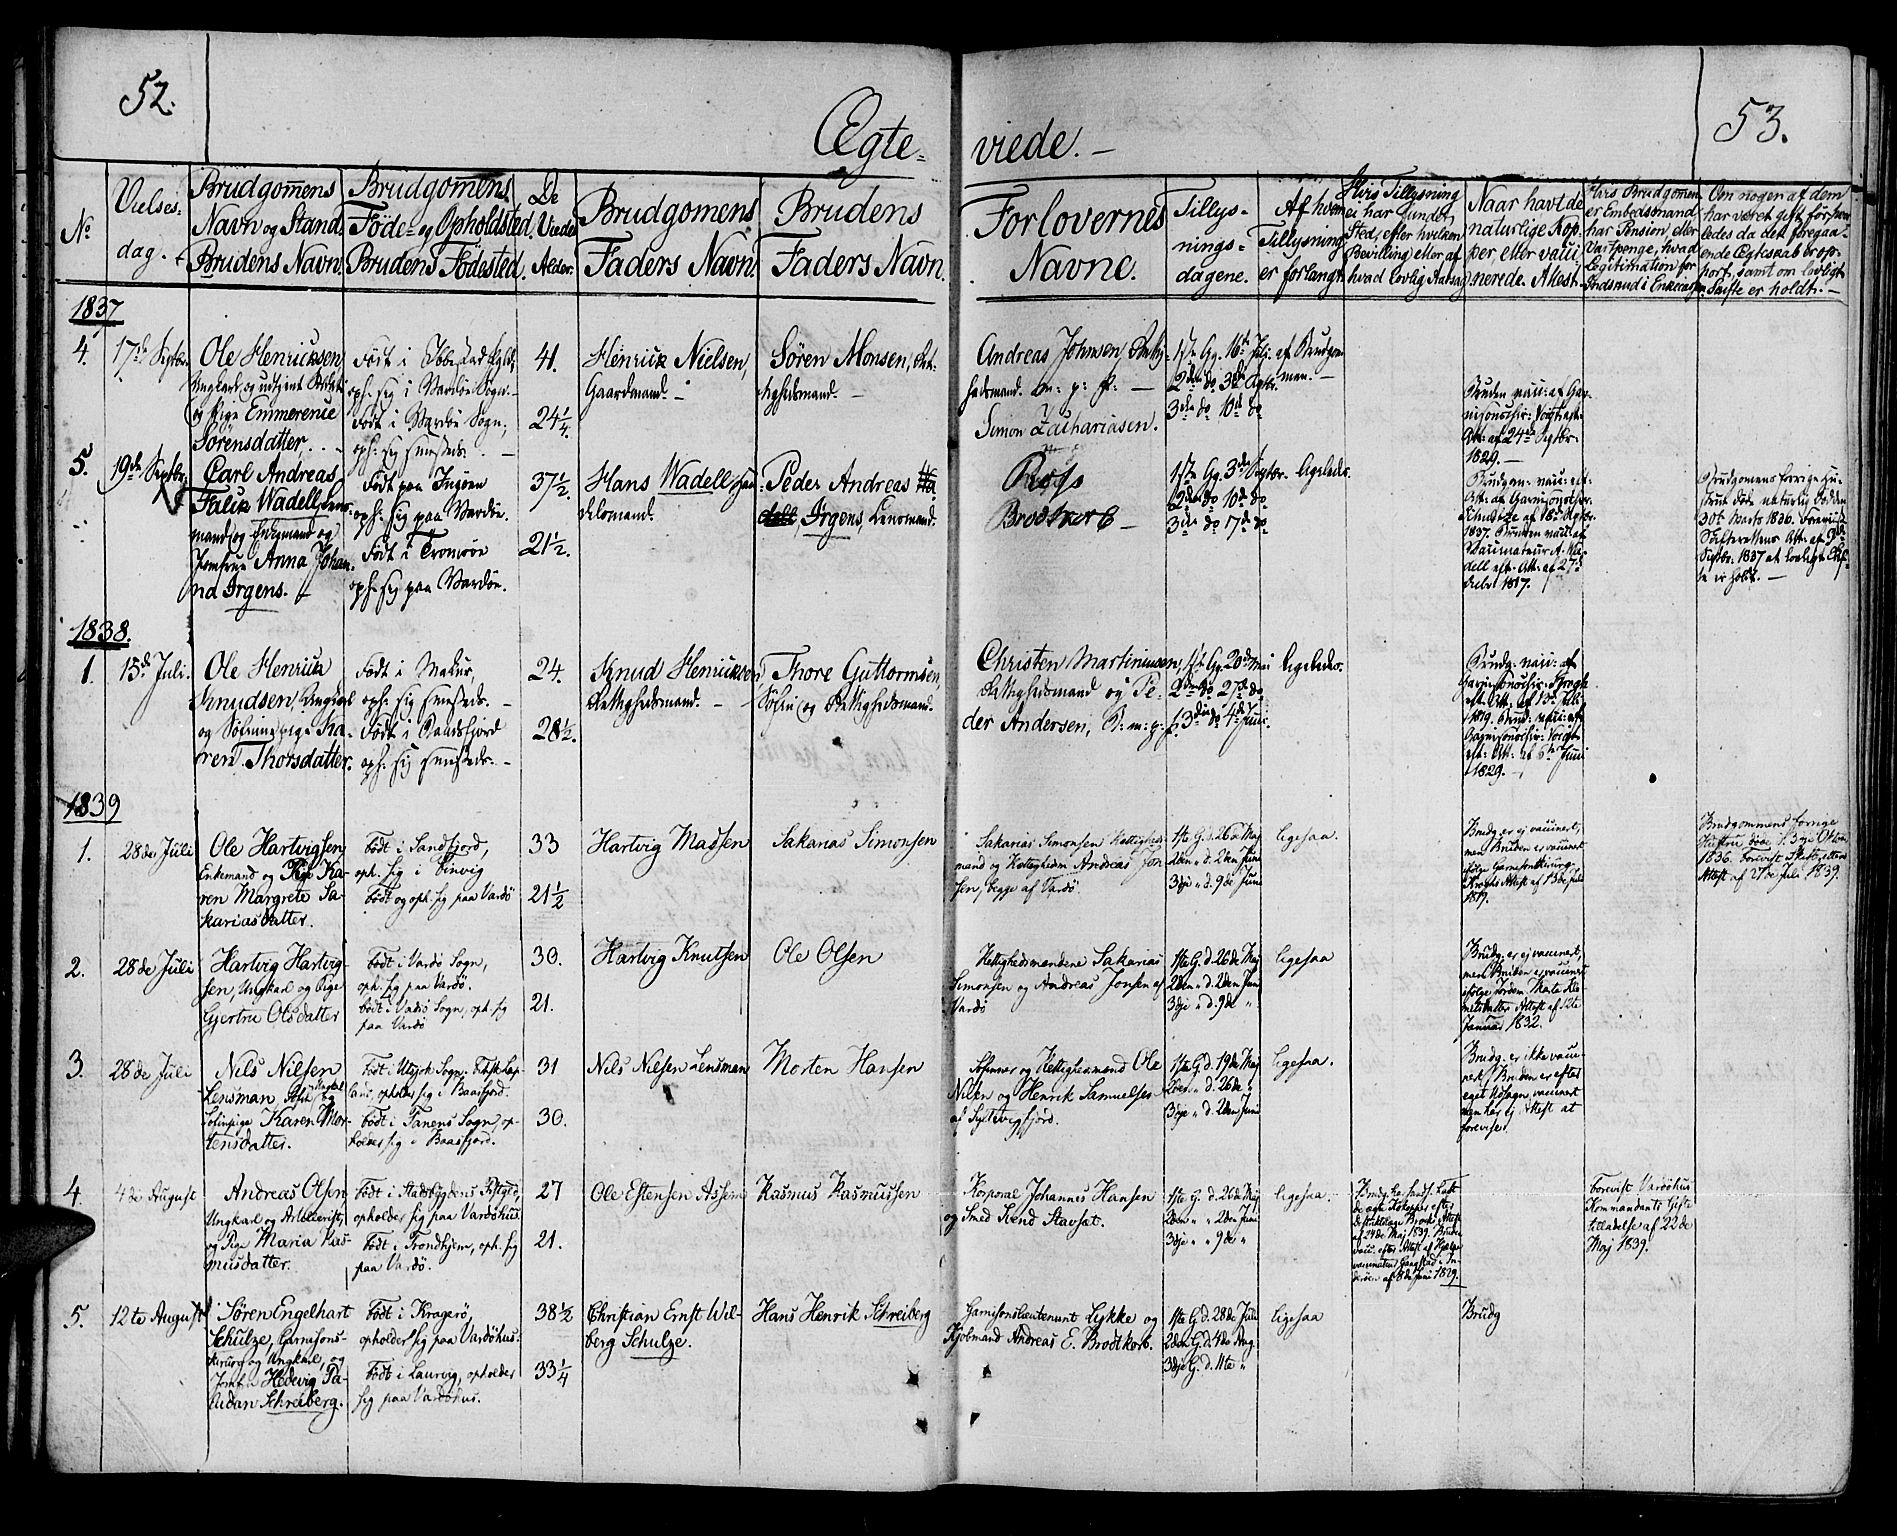 52.
Ægte=
viede. –
53.
No
Vielses-
dag.
Brudgomens
Navn og Stand.
Brudens Navn.
Brudgomens
Föde- og Opholdsted.
Brudens Födested.
De
Viede
Alder.
Brudgomens
Faders Navn.
Brudens
Faders Navn.
Forlovernes
Navne.
Tillys-
nings-
dagene.
Af hvem
Tillysning
er forlangt.
Hvis Tillysning
ei har fundet
Sted, efter hvilken
Bevilling eller af
hvad lovlig Aarsag
Naar havt de
naturlige Kop-
per, eller vacci-
nerede. Attest.
Hvis Brudgomen
er Embedsmand,
har Pension, eller
Vartpenge, hvad
Legitimation for
Indskud i Enkecassen
Om nogen af dem
har været gift forhen
ledes da det foregaa-
ende Ægteskab er op-
hört, samt om lovligt
Skifte er holdt. –
1837
4.
17de Septbr.
Ole Henricksen
Ungkarl og udtjent
og Pige Emmerenie
Sörensdatter.
Födt i
oph: sig i Vardöe Sogn. –
Födt i Vardöe Sogn,
oph: sig smsteds. –
41.
24 1/4.
Henrick Nielsen,
Gaardmand. –
Sören Monsen, Ret-
tighedsmand. –
Andreas Johnsen, Rettig-
hedsmand. m: p: p: –
Simon Zachariasen.
1ste Gg. 16de Juli
2den do 3de Sptbr.
3die do 10de do
af Brudgom-
men. –
Bruden vacc: af Gar-
nisonschir: Voigt eft:
Att: af 24de Septbr.
1829. –
5.
19de Septbr.
Carl Andreas
Falck Wadell,
mand og Enkemand og
Jomfrue Anna Johan-
na Irgens. –
Födt paa Ingöen
oph: sig paa Vardöe.
Födt i Tromsöe
oph: sig paa Vardöe.
37 1/2.
21 1/2.
Hans Wadell, Han-
delsmand.
Peder Andreas Wa
dell Irgens, Lensmand.
Roso
Brodtkorb –
1ste Gg. 3de Sptbr.
2den do 10de do
3die do 17de do
ligeleds.
Brudgom: vacc: eft:
Att: af Garnisonschir:
Schultze af 18de Sptbr.
1837. Bruden vacc: af
dell eft: Att: af 27de
1817.
Brudgomens forrige Hu-
strue döde naturlig Döden
30te Marts 1836. Foreviist
Skifterettens Att: af 9de
Septbr. 1837 at lovligt Skif-
te er holdt. –
1838.
1.
15de Juli.
Ole Henrick
Knudsen, Ungkarl
og Söfinnepige Ka-
ren Thorsdatter.
Födt i Makur,
oph: sig smsteds. –
Födt i Baadsfjord
oph: sig smsteds. –
24.
28 1/2.
Knud Henricksen
Rettighedsmand. –
Thore Guttormsen,
Söfin og Rettighedsmand.
Christen Martiniussen,
Rettighedsmand og Pe-
der Andersen, R: m: p: p.
1ste Gg. 20de Mai
2den do 27de do
3die do 4de Juni.
ligeleds.
Brudg: vacc: af
Garnisonschir: Krogh
eft: Att: af 13de Juli
1819. Brud: vacc: af
Garnisonschir: Voigt
eft: Att: af 6te Juni
1829. –
1839
1.
28de Juli
Ole Hartvigsen
Enkemand og Pige Ka-
ren Margrete Sa-
kariasdatter.
Födt i Sandfjord,
oph. sig i Sinvig
Födt og oph. sig paa Vardö
33
21 1/2
Hartvig Madsen
Sakarias Simonsen
Sakarias Simonsen Rettigheds-
mand og Rettighedm Andreas Jon-
sen, begge af Vardö
1ste G. d. 26de Maj
2den " d. 2den Juni
3dje " d. 9de Juni
ligesaa.
Brudg. er ej vaccinert,
men Bruden er vaccinert
ifölge Garnisonskirurg
Kroghs Attest af 13de Juli
1819.
Brudgommens forrige
Hustru döde i. 3dje Oktbr
1836. Forevist Skifterettens
Attest af 27de Juli 1839.
2.
28de Juli
Hartvig Hartvig-
sen, Ungkarl og Pige
Gjertru Olsdatter
Födt i Vardö Sogn,
oph. sig paa Vardö.
Födt i Vadsö Sogn, oph. sig
paa Vardö
30.
21.
Hartvig Knutsen
Ole Olsen
Rettighedsmændene Sakarias
Simonsen og Andreas Jonsen af
Vardö
1ste G. d. 26de Maj
2den " d. 2den Juni
3dje " d. 9de "
ligesaa
Brudg. er ej vaccinert,
men Bruden er vaccinert
ifölge Jordem. Marte Kle-
metsdatters Attest af 12te
Januar 1832.
3.
28de Juli
Nils Nilsen
Lensman, Ungkarl og
Söfinpige Karen Mor-
tensdatter.
Födt i Utsjok Sogn i Finsk Lap-
land, opholder sig i Baasfjord.
Födt i Tanens Sogn, op-
holder sig i Baasfjord.
31
30.
Nils Nilsen Lensman
Morten Hansen
Söfinner og Rettighedsmand Ole
Nilsen og Henrik Samuelsen
af Syltevigfjord.
1ste G. d. 19de Maj
2den " d. 26de "
3dje " d. 2den Juni
ligesaa.
Brudg. er ikke vacci-
nert, Bruden er efter
eget Udsagn vaccinert
men har ej Attest at
forevise.
4.
4de August
Andreas Olsen
Ungkarl og Artillerist,
og Pige Maria Ras-
musdatter.
Födt i Stadsbygdens Prstgjld,
opholder sig paa Vardöhus.
Födt i Trondhjem, oph. sig
paa Vardö.
27
21.
Ole Estensen Assem
Rasmus Rasmussen
Korporal Johannes Hansen
og Smed Svend Stavsat.
1ste G. d. 26de Maj
2den " " 2den Juni
3dje " " 9de "
ligesaa.
Brudg. har havt
de ægte Kokopper efter
Distriktslæge Brocks Attest
af 24de Maj 1839. Bruden
vacc. efter Attest af Hjælpe-
vaccinatør Gangstad i In-
deröen af 8de Juni 1829.
Forevist Vardöhus
Kommandants Gifte-
tilladelse af 22de
Maj 1839.
5.
12te August
Sören Engelhart
Schulze, Garnisons-
kirurg og Ungkarl, og
Jomfru Hedevig Pa-
ludan Schreiberg.
Födt i Kragerö,
opholder sig paa Vardöhus.
Födt i Laurvig, opholder
sig paa Vardöhus.
38 1/2
33 1/4
Christian Ernst Wil-
berg Schulze.
Hans Henrik Schreiberg
Garnisonslieutenant Lykke og
Kjöbmand Andreas E. Brodtkorb.
1ste G. d. 28de Juli
2den G. d. 4de Aug.
3dje G. d. 11te "
ligesaa
Brudg